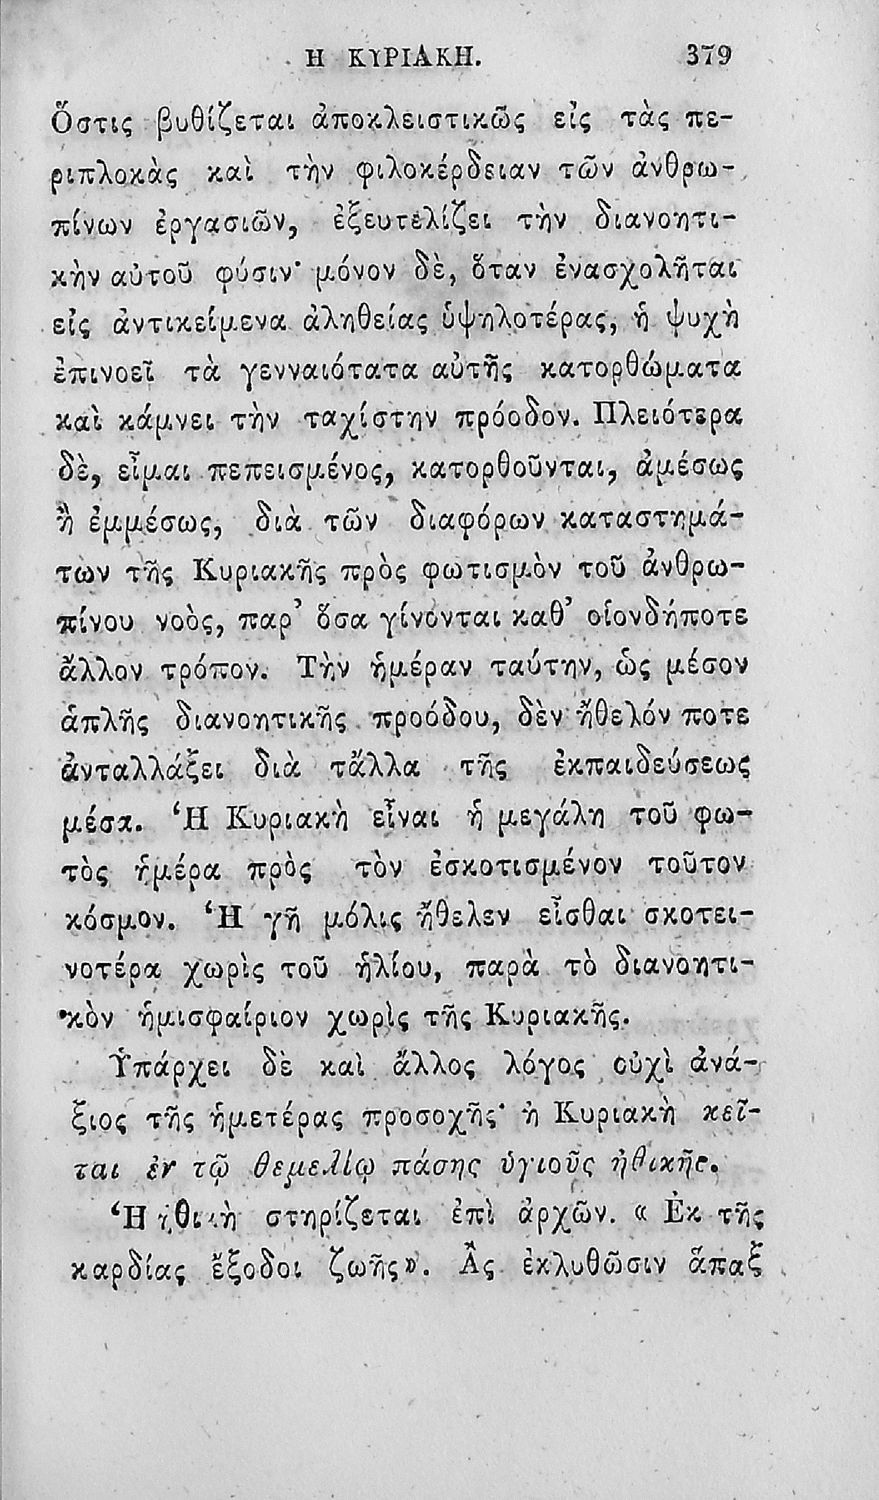 Η ΚΥΡΙΑΚΗ. 379
Ὅστις βυθίζεται ἀποκλειστικῶς εἰς τὰς πε-
ριπλοκὰς καὶ τὴν φιλοκέρδειαν τῶν ἀνθρω-
πίνων ἐργασιῶν, ἐξευτελίζει τὴν διανοητι-
κὴν αὐτοῦ φύσιν· μόνον δὲ, ὅταν ἐνασχολῆται
εἰς ἀντικείμενα ἀληθείας ὑψηλοτέρας, ἡ ψυχὴ
ἐπινοεῖ τὰ γενναιότατα αὐτῆς κατορθώματα
καὶ κάμνει τὴν ταχίστην πρόοδον. Πλειότερα
δὲ, εἶμαι πεπεισμένος, κατορθοῦνται, ἀμέσως
ἢ ἐμμέσως, διὰ τῶν διαφόρων καταστημά-
των τῆς Κυριακῆς πρὸς φωτισμὸν τοῦ ἀνθρω-
πίνου νοὸς, παρ’ ὅσα γίνονται καθ’ οἱονδήποτε
ἄλλον τρόπον. Τὴν ἡμέραν ταύτην, ὡς μέσον
ἁπλῆς διανοητικῆς προόδου, δὲν ἤθελόν ποτε
ἀνταλλάξει διὰ τἄλλα τῆς ἐκπαιδεύσεως
μέσα. Ἡ Κυριακὴ εἶναι ἡ μεγάλη τοῦ φω-
τὸς ἡμέρα πρὸς τὸν ἐσκοτισμένον τοῦτον
κόσμον. Ἡ γῆ μόλις ἤθελεν εἶσθαι σκοτει-
νοτέρα χωρὶς τοῦ ἡλίου, παρὰ τὸ διανοητι-
κὸν ἡμισφαίριον χωρὶς τῆς Κυριακῆς.
Ὑπάρχει δὲ καὶ ἄλλος λόγος οὐχὶ ἀνά-
ξιος τῆς ἡμετέρας προσοχῆς· ἡ Κυριακὴ κεῖ-
ται ἐν τῷ θεμελίῳ πάσης ὑγιοῦς ἠθικῆς.
Ἡ ἠθικὴ στηρίζεται ἐπὶ ἀρχῶν. « Ἐκ τῆς
καρδίας ἔξοδοι ζωῆς». Ἂς ἐκλυθῶσιν ἅπαξ